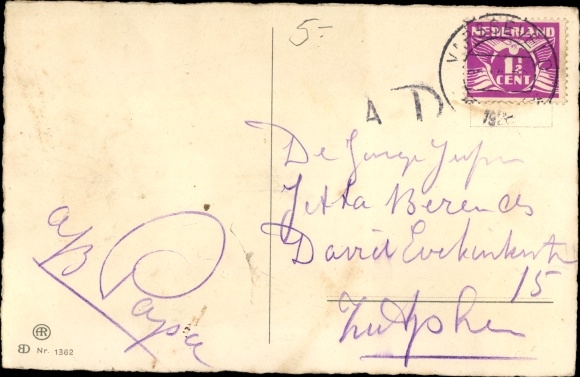 5-
NEDERLAND
1½
CENT
192
A D
De Jonge Jufvr
Jetta Berends
David Evekinkstr
15
Zutphen
a/B Papa
Nr. 1362